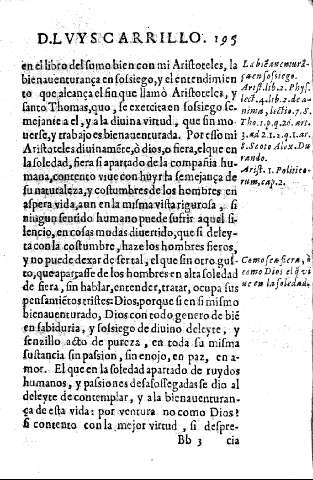 D. LVYS CARRILLO. 195
en el libro del sumo bien con mi Aristoteles, la
bienauenturança en sossiego, y el entendimien
to que alcança el fin que llamò Aristoteles, y
santo Thomas, quo, se exercita en sossiego se-
mejante a el, y a la diuina virtud, que sin mo-
uerse, y trabajo es bienauenturada. Por esso mi
Aristoteles diuinamẽte, ò dios, o fiera, el que en
la soledad, fiera si apartado de la compañia hu-
mana, contento viue con huyr la semejança de
su naturaleza, y costumbres de los hombres en
aspera vida, aun en la misma vista rigurosa, si
ningun sentido humano puede sufrir aquel si-
lencio, en cosas mudas diuertido, que si deley-
ta con la costumbre, haze los hombres fieros,
y no puede dexar de ser tal, el que sin otro gus-
to, que apartasse de los hombres en alta soledad
de fiera, sin hablar, entender, tratar, ocupa sus
pensamiẽtos tristes: Dios, porque si en si mismo
bienauenturado, Dios con todo genero de biẽ
en sabiduria, y sossiego de diuino deleyte, y
senzillo acto de pureza, en toda su misma
sustancia sin passion, sin enojo, en paz, en a-
mor. El que en la soledad apartado de ruydos
humanos, y passiones desasossegadas se dio al
deleyte de contemplar, y a la bienauenturan-
ça de esta vida: por ventura no como Dios?
si contento con la mejor virtud, si despre-
Bb 3 cia
La biẽ auentura
ça en sossiego.
Arist. lib. 2. Phys.
lect. 4. lib. 2. de a-
nima, lectio. 7. S.
Tho. 1. p. q. 26. art.
3. ad 2. 1. 2. q. 1. ar.
8. Scoto Alex. Du
rando.
Arist. 1. Politico-
rum, cap. 2.
Como sea fiera, ò
como Dios el q̃ vi
ue en la soledad.